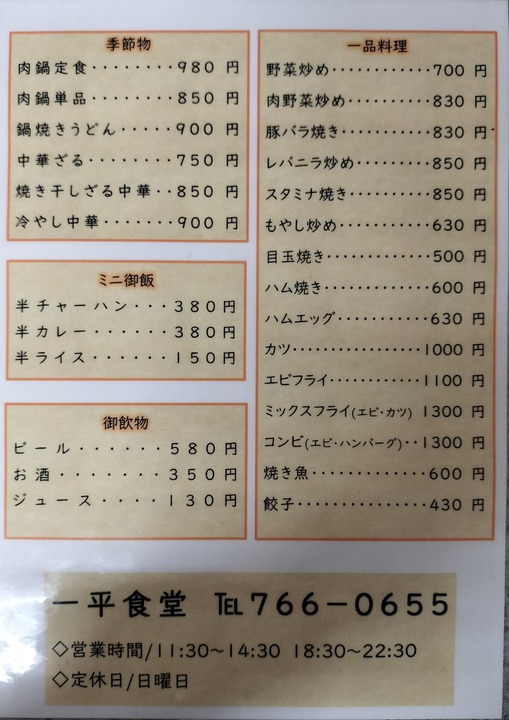 季節物
肉鍋定食‥‥‥‥980 円
肉鍋単品‥‥‥‥850 円
鍋焼きうどん‥‥‥900 円
中華ざる‥‥‥‥750 円
焼き干しざる中華‥850 円
冷やし中華‥‥‥‥900 円
ミニ御飯
半チャーハン・・・380円
半カレー・・・・・380円
半ライス・・・・・・150円
御飲物
ビール・・・・・580円
お酒・・・・・・・350円
ジュース・・・・130円
一品料理
野菜炒め‥‥‥‥‥‥700 円
肉野菜炒め‥‥‥‥‥830 円
豚バラ焼き‥‥‥‥‥830 円
レバニラ炒め‥‥‥‥850 円
スタミナ焼き‥‥‥‥850 円
もやし炒め‥‥‥‥‥630 円
目玉焼き‥‥‥‥‥‥500 円
ハム焼き‥‥‥‥‥‥600 円
ハムエッグ‥‥‥‥‥630 円
カツ‥‥‥‥‥‥‥1000 円
エビフライ‥‥‥‥‥1100 円
ミックスフライ(エビ・カツ) 1300 円
コンビ(エビ・ハンバーグ)‥1300 円
焼き魚‥‥‥‥‥‥‥600 円
餃子‥‥‥‥‥‥‥‥430 円
一平食堂 ℡766−0655
◇営業時間/11:30〜14:30 18:30〜22:30
◇定休日/日曜日